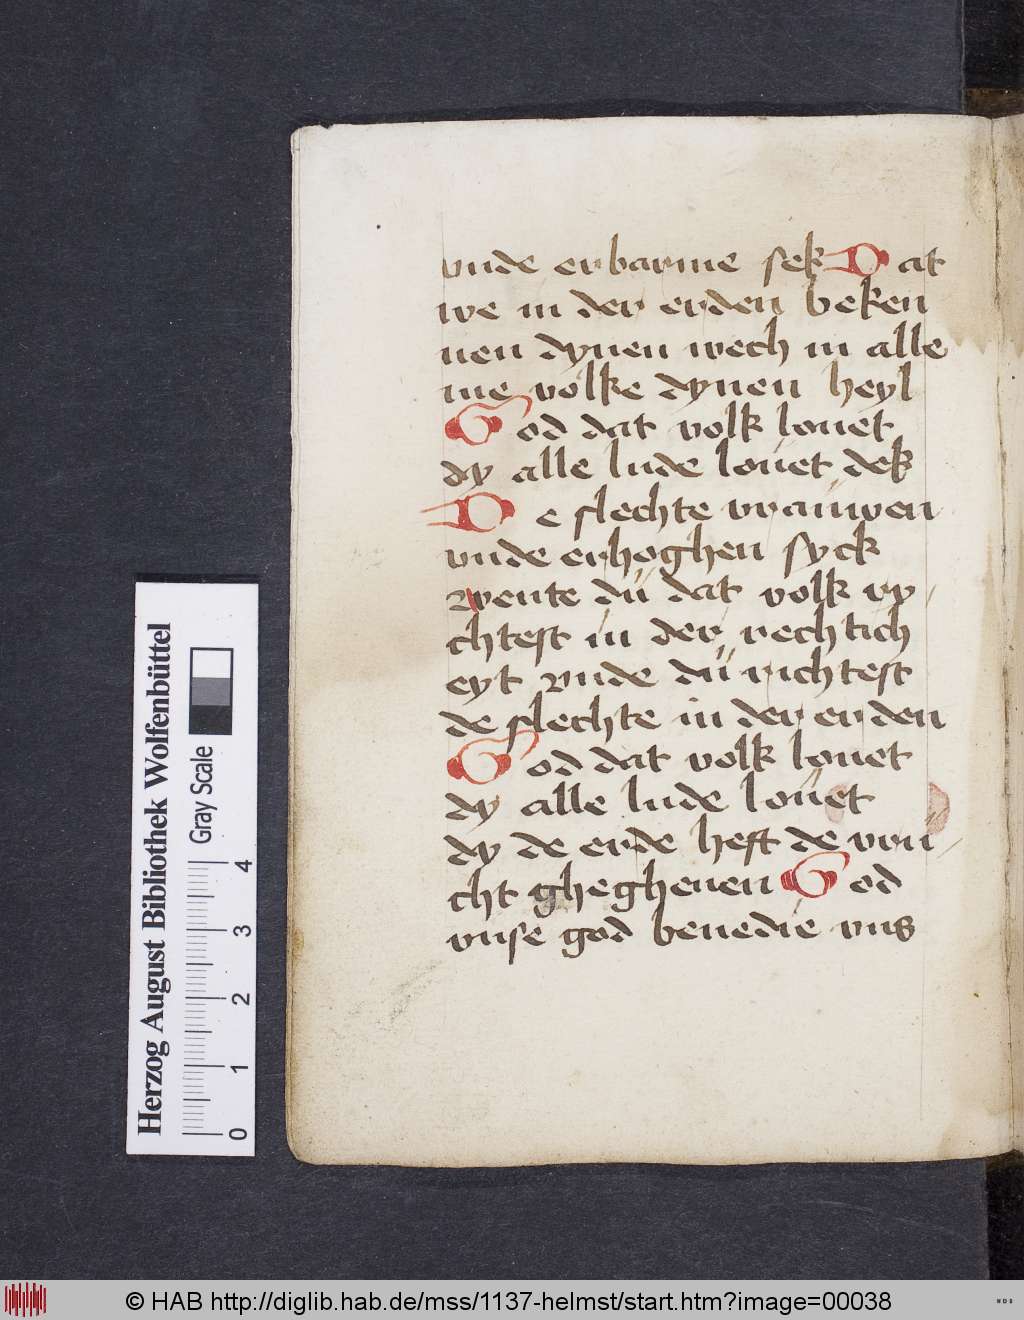 vnde erbarme sek Dat
we in der erden beken
nen dynen wech in alle
me volke dynen heyl
God dat volk louet
dy alle lude louet dek
De slechte vrauwen
vnde erhoghen syck
wente du dat volk ry
chtest in der rechtich
eyt vnde du richtest
de slechte in der erden
God dat volk louet
dy alle lude louet
dy de erde heft de vru
cht ghegheuen God
vnse god benedie vns
Herzog August Bibliothek Wolfenbüttel
Gray Scale
0 1 2 3 4
© HAB http://diglib.hab.de/mss/1137-helmst/start.htm?image=00038